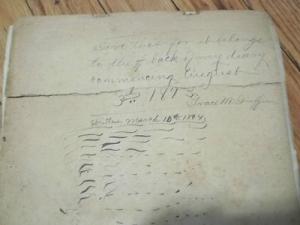 for it belongs
to the back of my diary
commencing August
3rd 1893
Grace M.
Written March 10th 1894